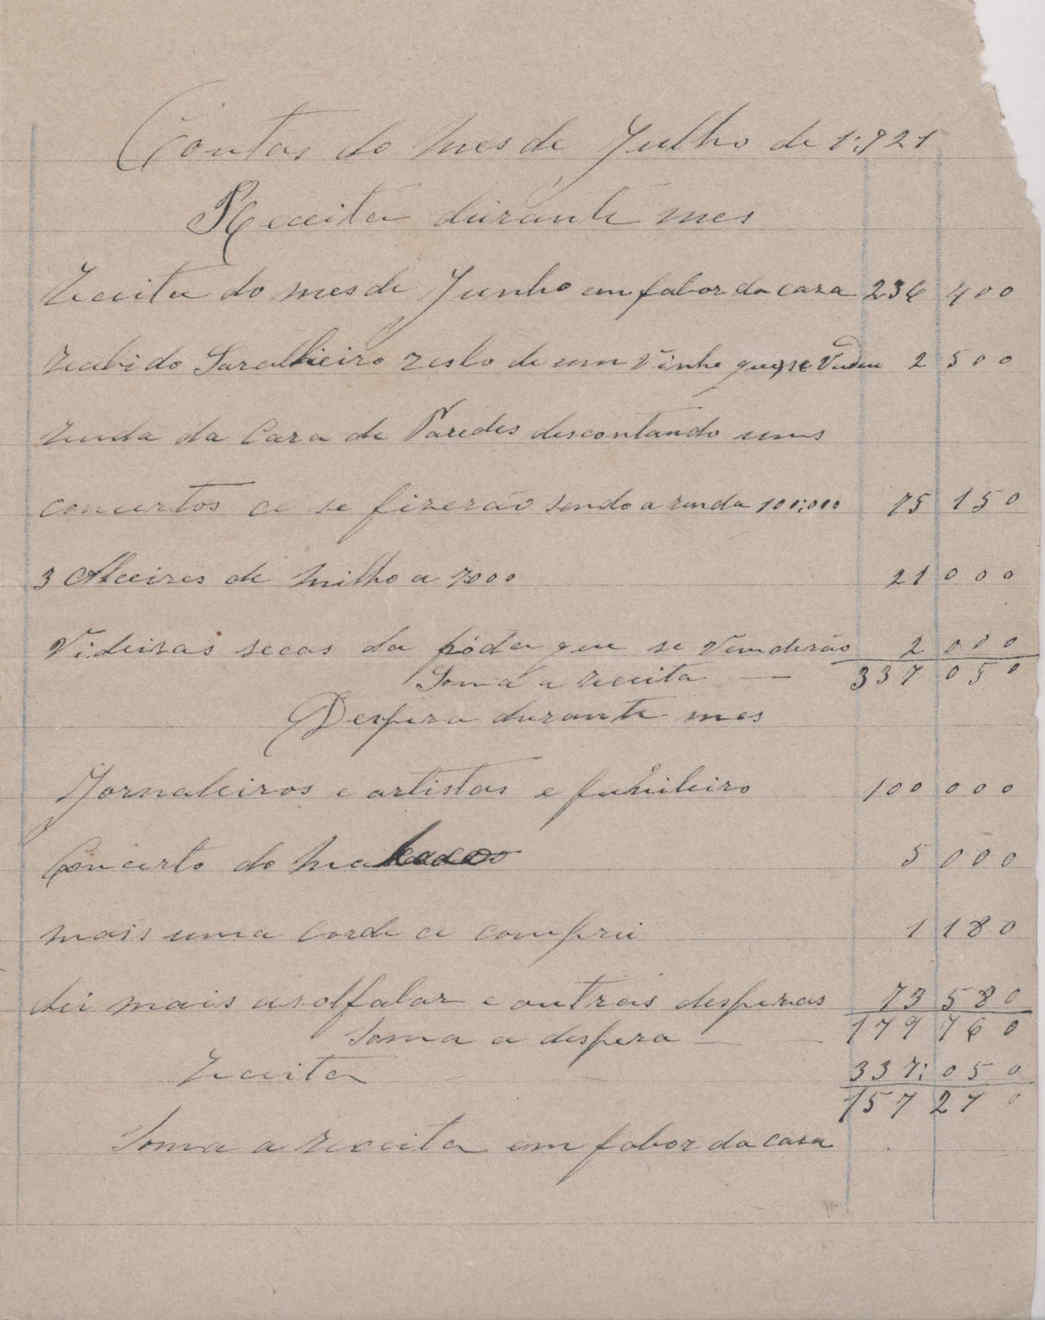 Contas do mes de Julho de 1:921
Receita durante mes
Receita do mes de Junho em fabor da caza 236 400
recebi do resto de um vinho que se vendeu 2 500
renda da Caza de Paredes descontando uns
concertos ce se fizerão sendo a renda 100:000 75 150
3 Alceires de milho a 7000 21 000
Videiras secas da póda que se venderão 2 000
Soma a receita — 337 050
Despeza durante mes
Jornaleiros e artistas e funileiro 100 000
Concerto do 5 000
mais uma corda ce comprei 1 180
dei mais asolfatar e outras despezas 73 580
Soma a despeza — 179 760
Receita 337: 050
157 27
Soma a receita em fabor da caza